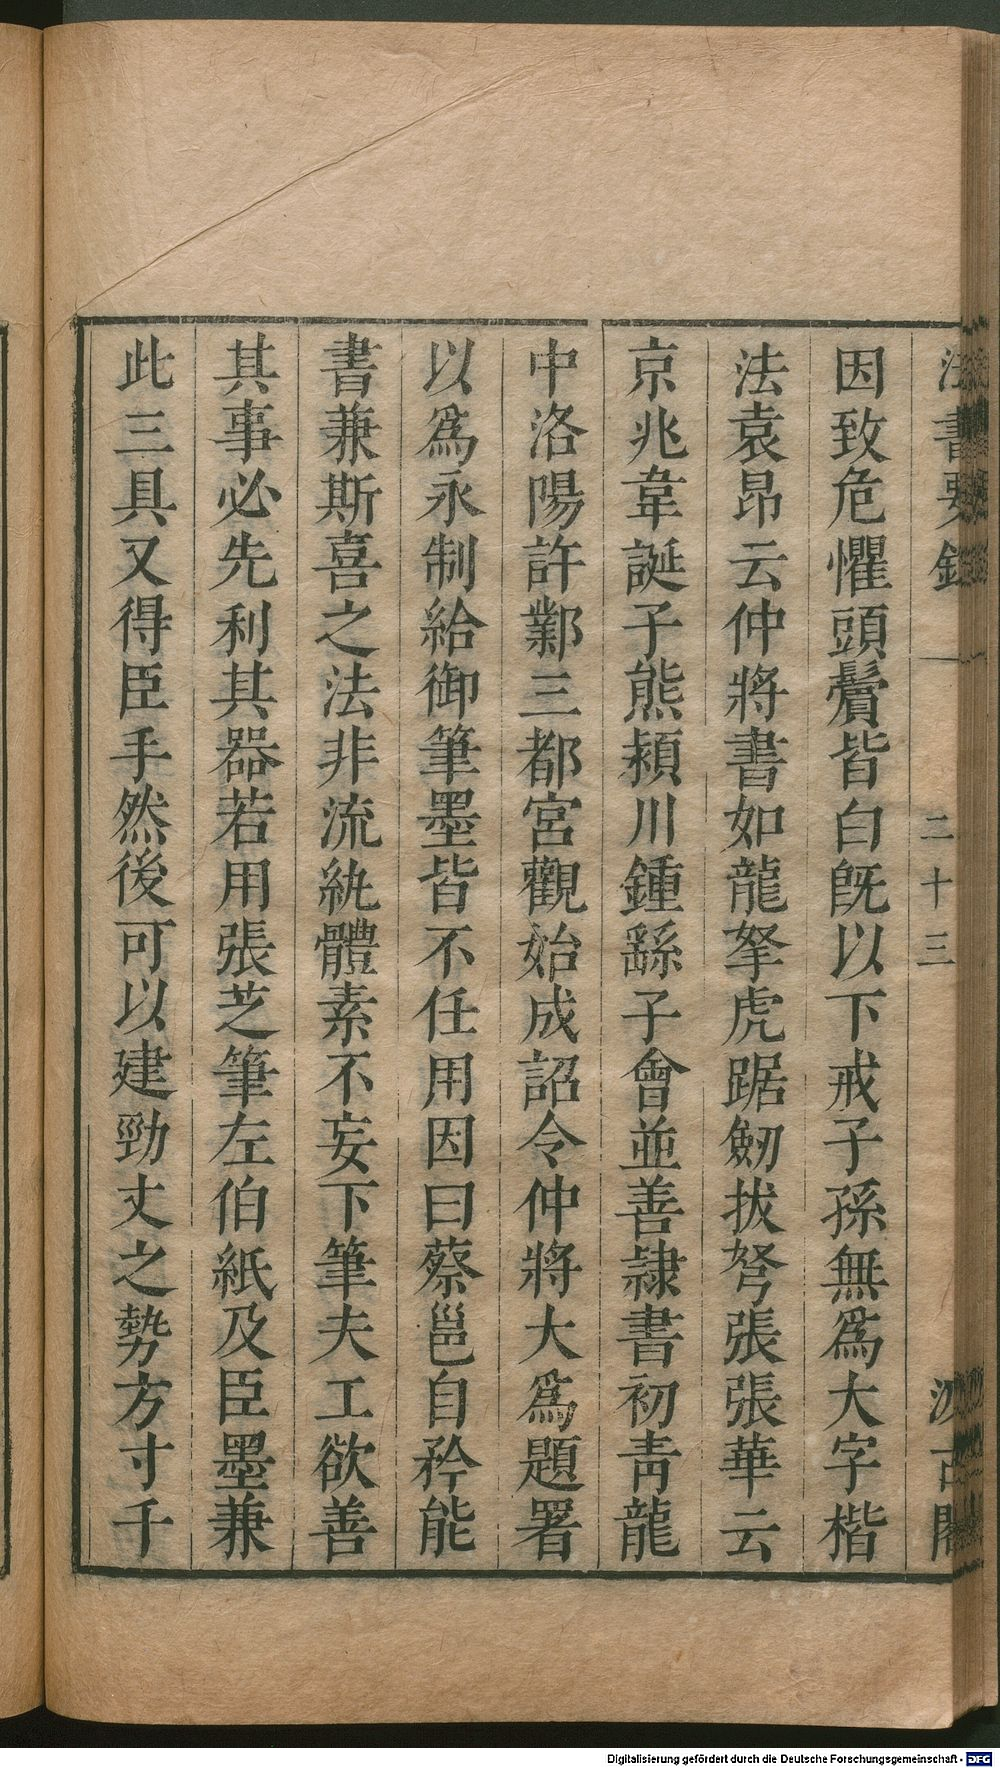 法書要錄
二十三
汲古閣
因致危懼頭鬢皆白旣以下戒子孫無爲大字楷
法袁昂云仲將書如龍拏虎踞劒拔弩張張華云
京兆韋誕子熊潁川鍾繇子會並善隷書初靑龍
中洛陽許鄴三都宮觀始成詔令仲將大爲題署
以爲永制給御筆墨皆不任用因曰蔡邕自矜能
書兼斯喜之法非流紈體素不妄下筆夫工欲善
其事必先利其器若用張芝筆左伯紙及臣墨兼
此三具又得臣手然後可以建勁丈之勢方寸千
Digitalisierung gefördert durch die Deutsche Forschungsgemeinschaft - DFG